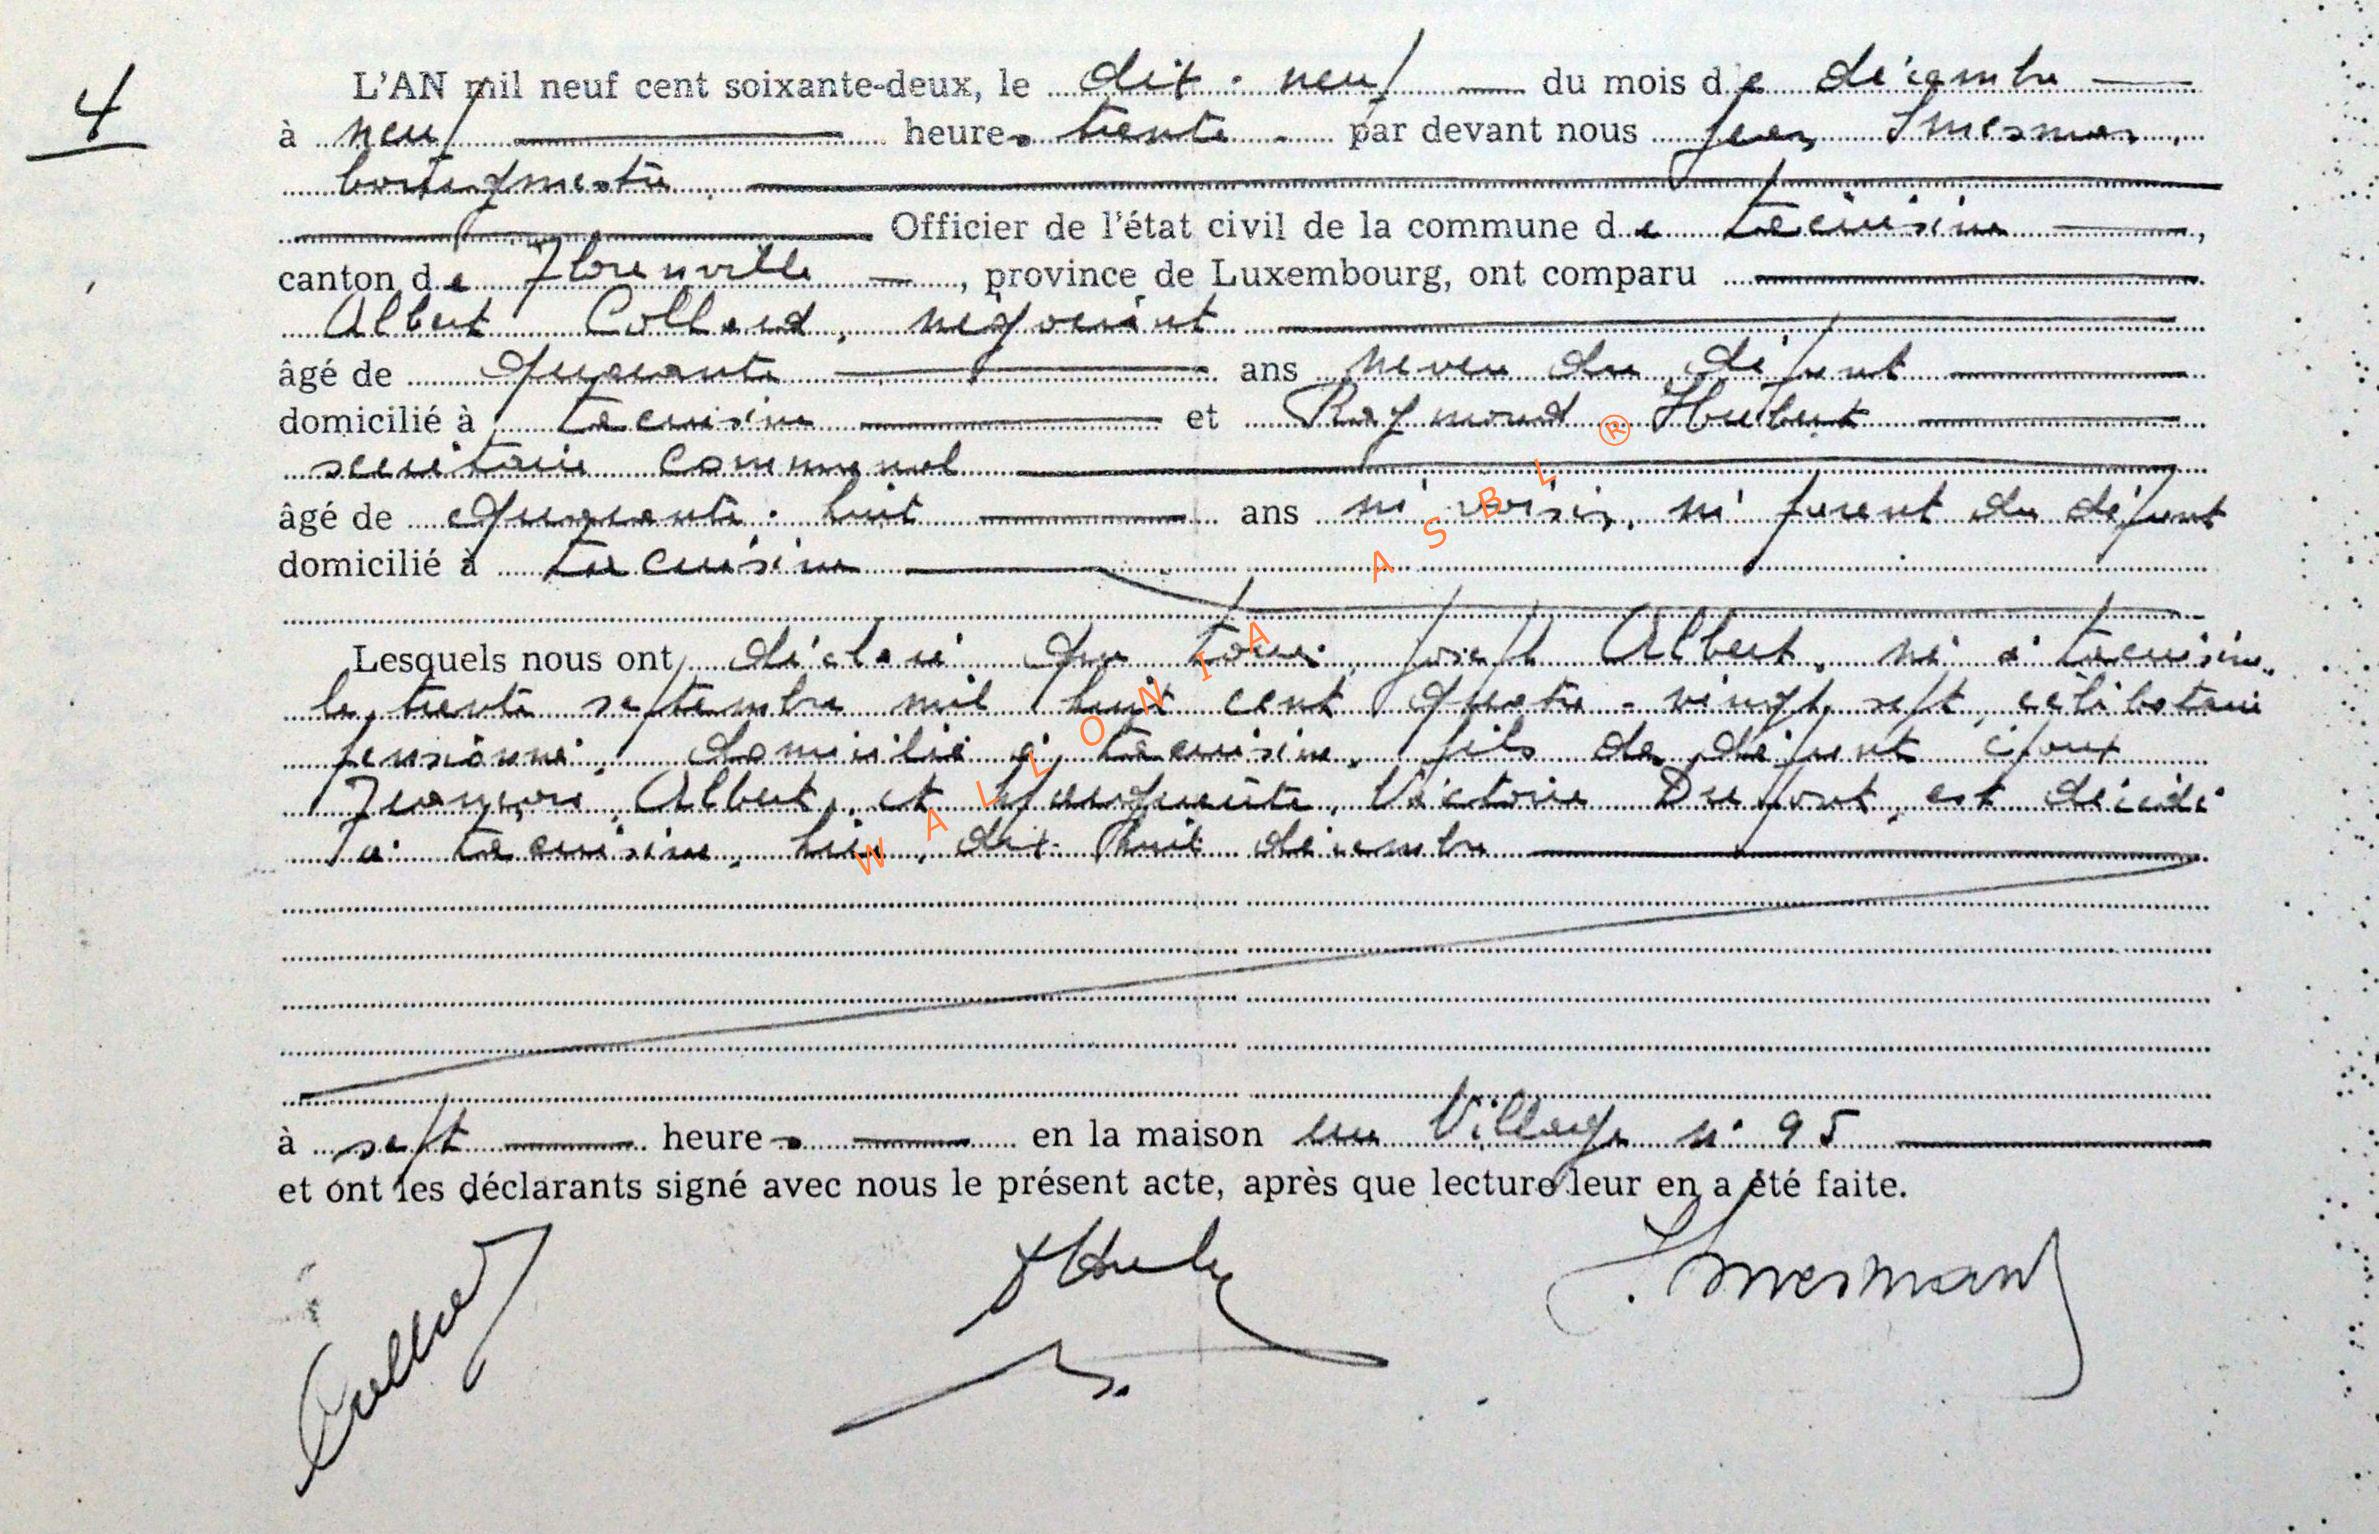 4
L'AN mil neuf cent soixante-deux, le dix-neuf du mois de décembre
à neuf heures trente par devant nous Jean
bourgmestre
Officier de l'état civil de la commune de Lacuisine,
canton de Florenville, province de Luxembourg, ont comparu
Albert Collard, négociant
âgé de quarante ans neveu du défunt
domicilié à Lacuisine et Raymond Hubert
secrétaire communal
âgé de quarante-huit ans ni voisin, ni parent du défunt
domicilié à Lacuisine
Lesquels nous ont déclaré que Joseph Albert, né à Lacuisine,
le trente septembre mil huit cent quatre-vingt sept, célibataire
pensionné, domicilié à Lacuisine, fils de défunt époux
François Albert, et Marguerite, Victoire Dupont, est décédé
à Lacuisine, hier, dix-huit décembre
à sept heures en la maison au Village n° 95
et ont les déclarants signé avec nous le présent acte, après que lecture leur en a été faite.
WALLONIA ASBL ®